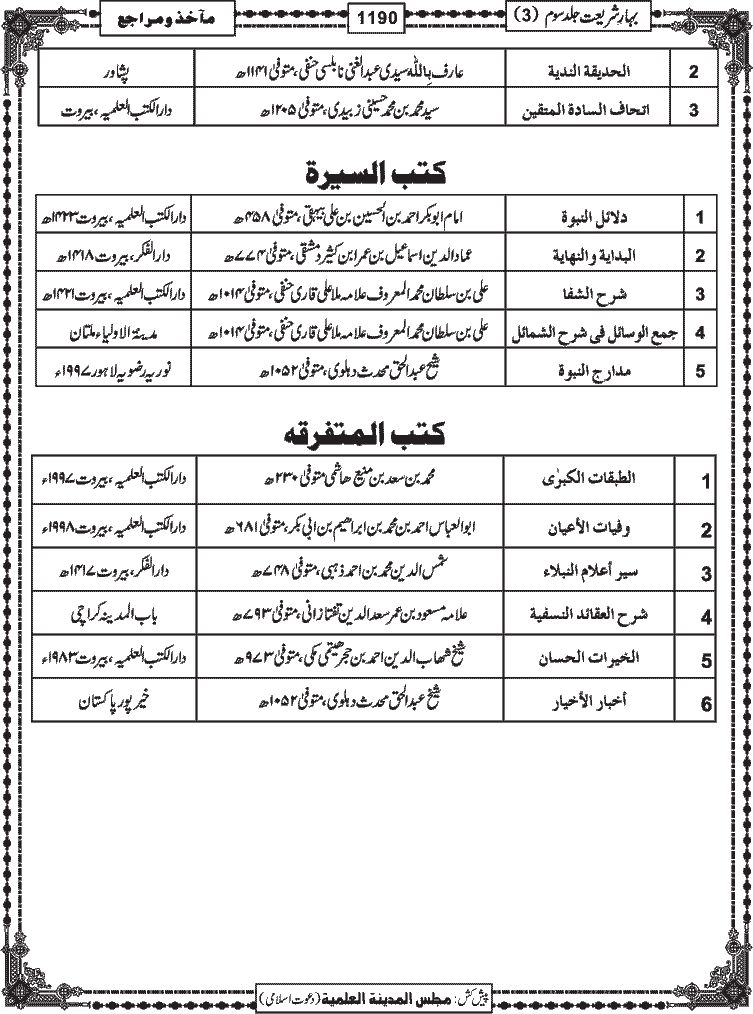 بہارِ شریعت جلد سوم (3) 1190 مآخذ و مراجع
2 الحدیقۃ الندیۃ عارف بِاللّٰہ سیدی عبدالغنی نابلسی حنفی، متوفیٰ ۱۱۴۱ھ پشاور
3 اتحاف السادۃ المتقین سید محمد بن محمد حسینی زبیدی، متوفیٰ ۱۲۰۵ھ دارالکتب العلمیہ، بیروت
کتب السیرۃ
1 دلائل النبوۃ امام ابوبکر احمد بن الحسین بن علی بیہقی، متوفیٰ ۴۵۸ھ دارالکتب العلمیہ، بیروت ۱۴۲۳ھ
2 البدایۃ والنھایۃ عماد الدین اسماعیل بن عمر ابن کثیر دمشقی، متوفیٰ ۷۷۴ھ دارالفکر، بیروت ۱۴۱۸ھ
3 شرح الشفا علی بن سلطان محمد المعروف علامہ ملا علی قاری حنفی، متوفیٰ ۱۰۱۴ھ دارالکتب العلمیہ، بیروت ۱۴۲۱ھ
4 جمع الوسائل فی شرح الشمائل علی بن سلطان محمد المعروف علامہ ملا علی قاری حنفی، متوفیٰ ۱۰۱۴ھ مدینۃ الاولیاء ملتان
5 مدارج النبوۃ شیخ عبدالحق محدث دہلوی، متوفیٰ ۱۰۵۲ھ نوریہ رضویہ لاہور ۱۹۹۷ء
کتب المتفرقہ
1 الطبقات الکبرٰی محمد بن سعد بن منیع ھاشمی متوفیٰ ۲۳۰ھ دارالکتب العلمیہ، بیروت ۱۹۹۷ء
2 وفیات الأعیان ابوالعباس احمد بن محمد بن ابراھیم بن ابی بکر، متوفیٰ ۶۸۱ھ دارالکتب العلمیہ، بیروت ۱۹۹۸ء
3 سیر أعلام النبلاء شمس الدین محمد بن احمد ذہبی، متوفیٰ ۷۴۸ھ دارالفکر، بیروت ۱۴۱۷ھ
4 شرح العقائد النسفیۃ علامہ مسعود بن عمر سعد الدین تفتازانی، متوفیٰ ۷۹۳ھ باب المدینہ کراچی
5 الخیرات الحسان شیخ شھاب الدین احمد بن حجر ھیتمی مکی، متوفیٰ ۹۷۳ھ دارالکتب العلمیہ، بیروت ۱۹۸۳ء
6 أخبار الأخیار شیخ عبدالحق محدث دہلوی، متوفیٰ ۱۰۵۲ھ خیر پور پاکستان
پیش کش: مجلس المدینۃ العلمیۃ (دعوت اسلامی)